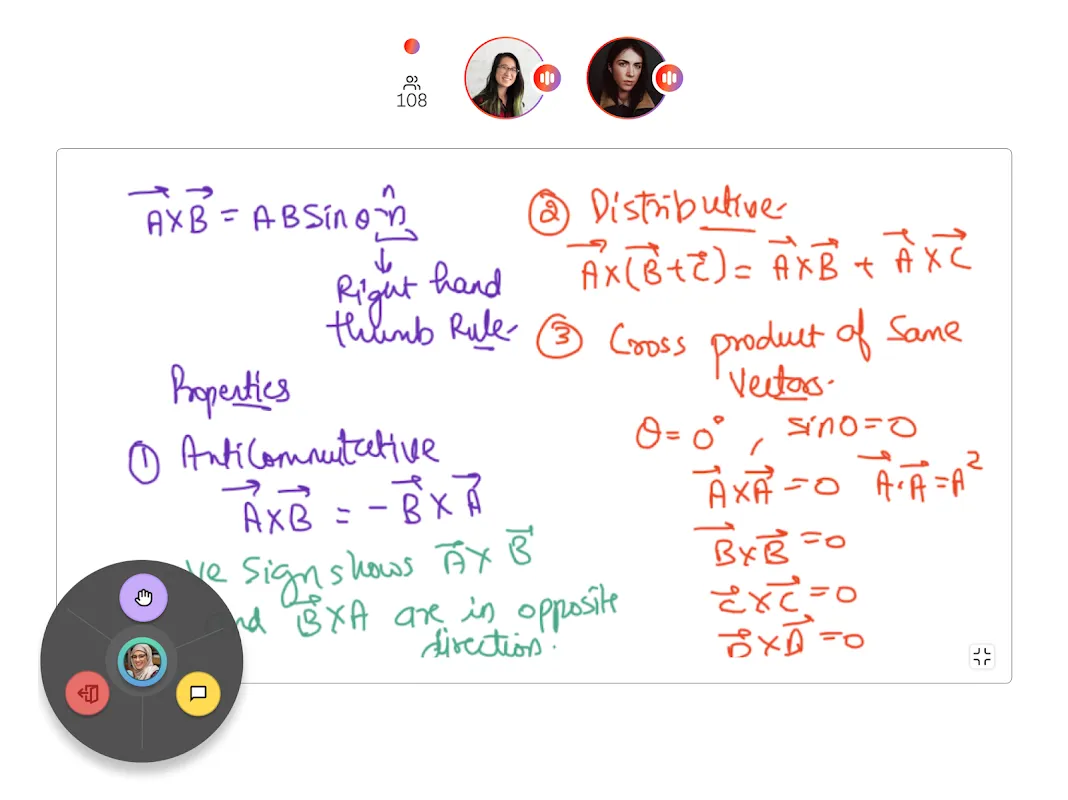 108
A⃗×B⃗ = AB Sin θ n̂
n̂
↓
Right hand
thumb Rule
Properties
① Anticommutative
A⃗×B⃗ = −B⃗×A⃗
ve Sign shows A⃗×B⃗
nd B⃗×A are in opposite
direction.
② Distributive
A⃗×(B⃗+C⃗) = A⃗×B⃗ + A⃗×C⃗
③ Cross product of Same
Vectors.
θ = 0°, sin0 = 0
A⃗×A⃗ = 0 A⃗·A⃗ = A²
B⃗×B⃗ = 0
C⃗×C⃗ = 0
D⃗×D⃗ = 0